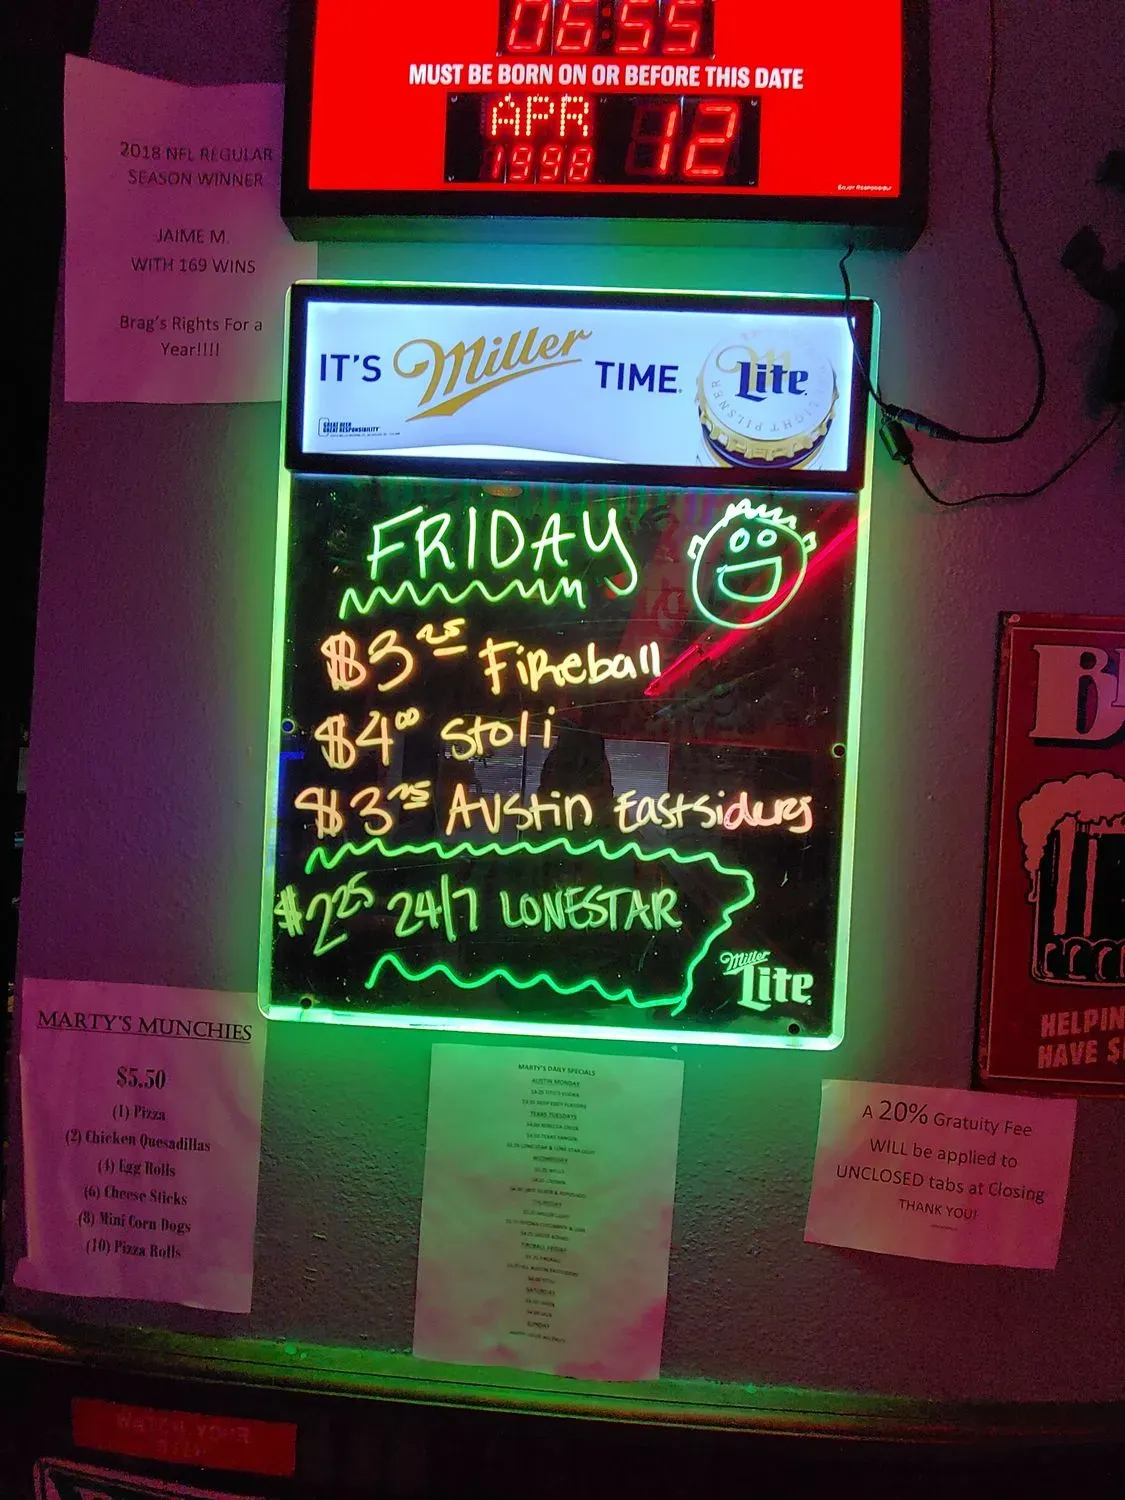 06:55
MUST BE BORN ON OR BEFORE THIS DATE
APR 12
1998
Enjoy Responsibly
2018 NFL REGULAR
SEASON WINNER
JAIME M.
WITH 169 WINS
Brag's Rights For a
Year!!!!
IT'S Miller TIME
Lite
GREAT BEER
GREAT RESPONSIBILITY
FRIDAY
$3.25 Fireball
$4.00 Stoli
$3.25 Austin Eastsiders
$2.25 24/7 LONESTAR
Miller
Lite
MARTY'S MUNCHIES
$5.50
(1) Pizza
(2) Chicken Quesadillas
(4) Egg Rolls
(6) Cheese Sticks
(8) Mini Corn Dogs
(10) Pizza Rolls
MARTY'S DAILY SPECIALS
AUSTIN MONDAY
TEXAS TUESDAYS
WEDNESDAY
THURSDAY
FIREBALL FRIDAY
SATURDAY
SUNDAY
A 20% Gratuity Fee
WILL be applied to
UNCLOSED tabs at Closing
THANK YOU!
HELPIN
HAVE S